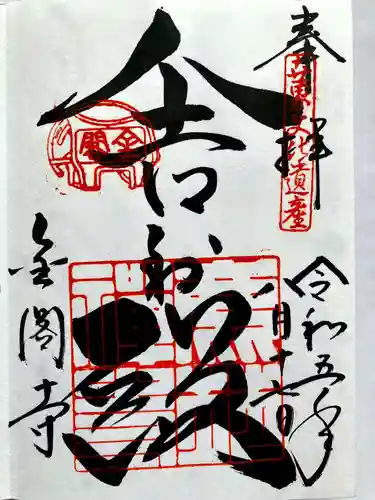 奉拝
世界文化遺産
令和五年
八月十七日
舎利殿
金閣
金閣寺